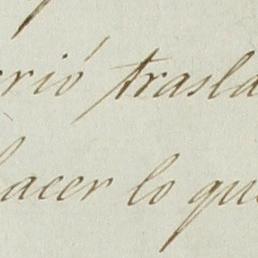 rrió trasla
hacer lo que